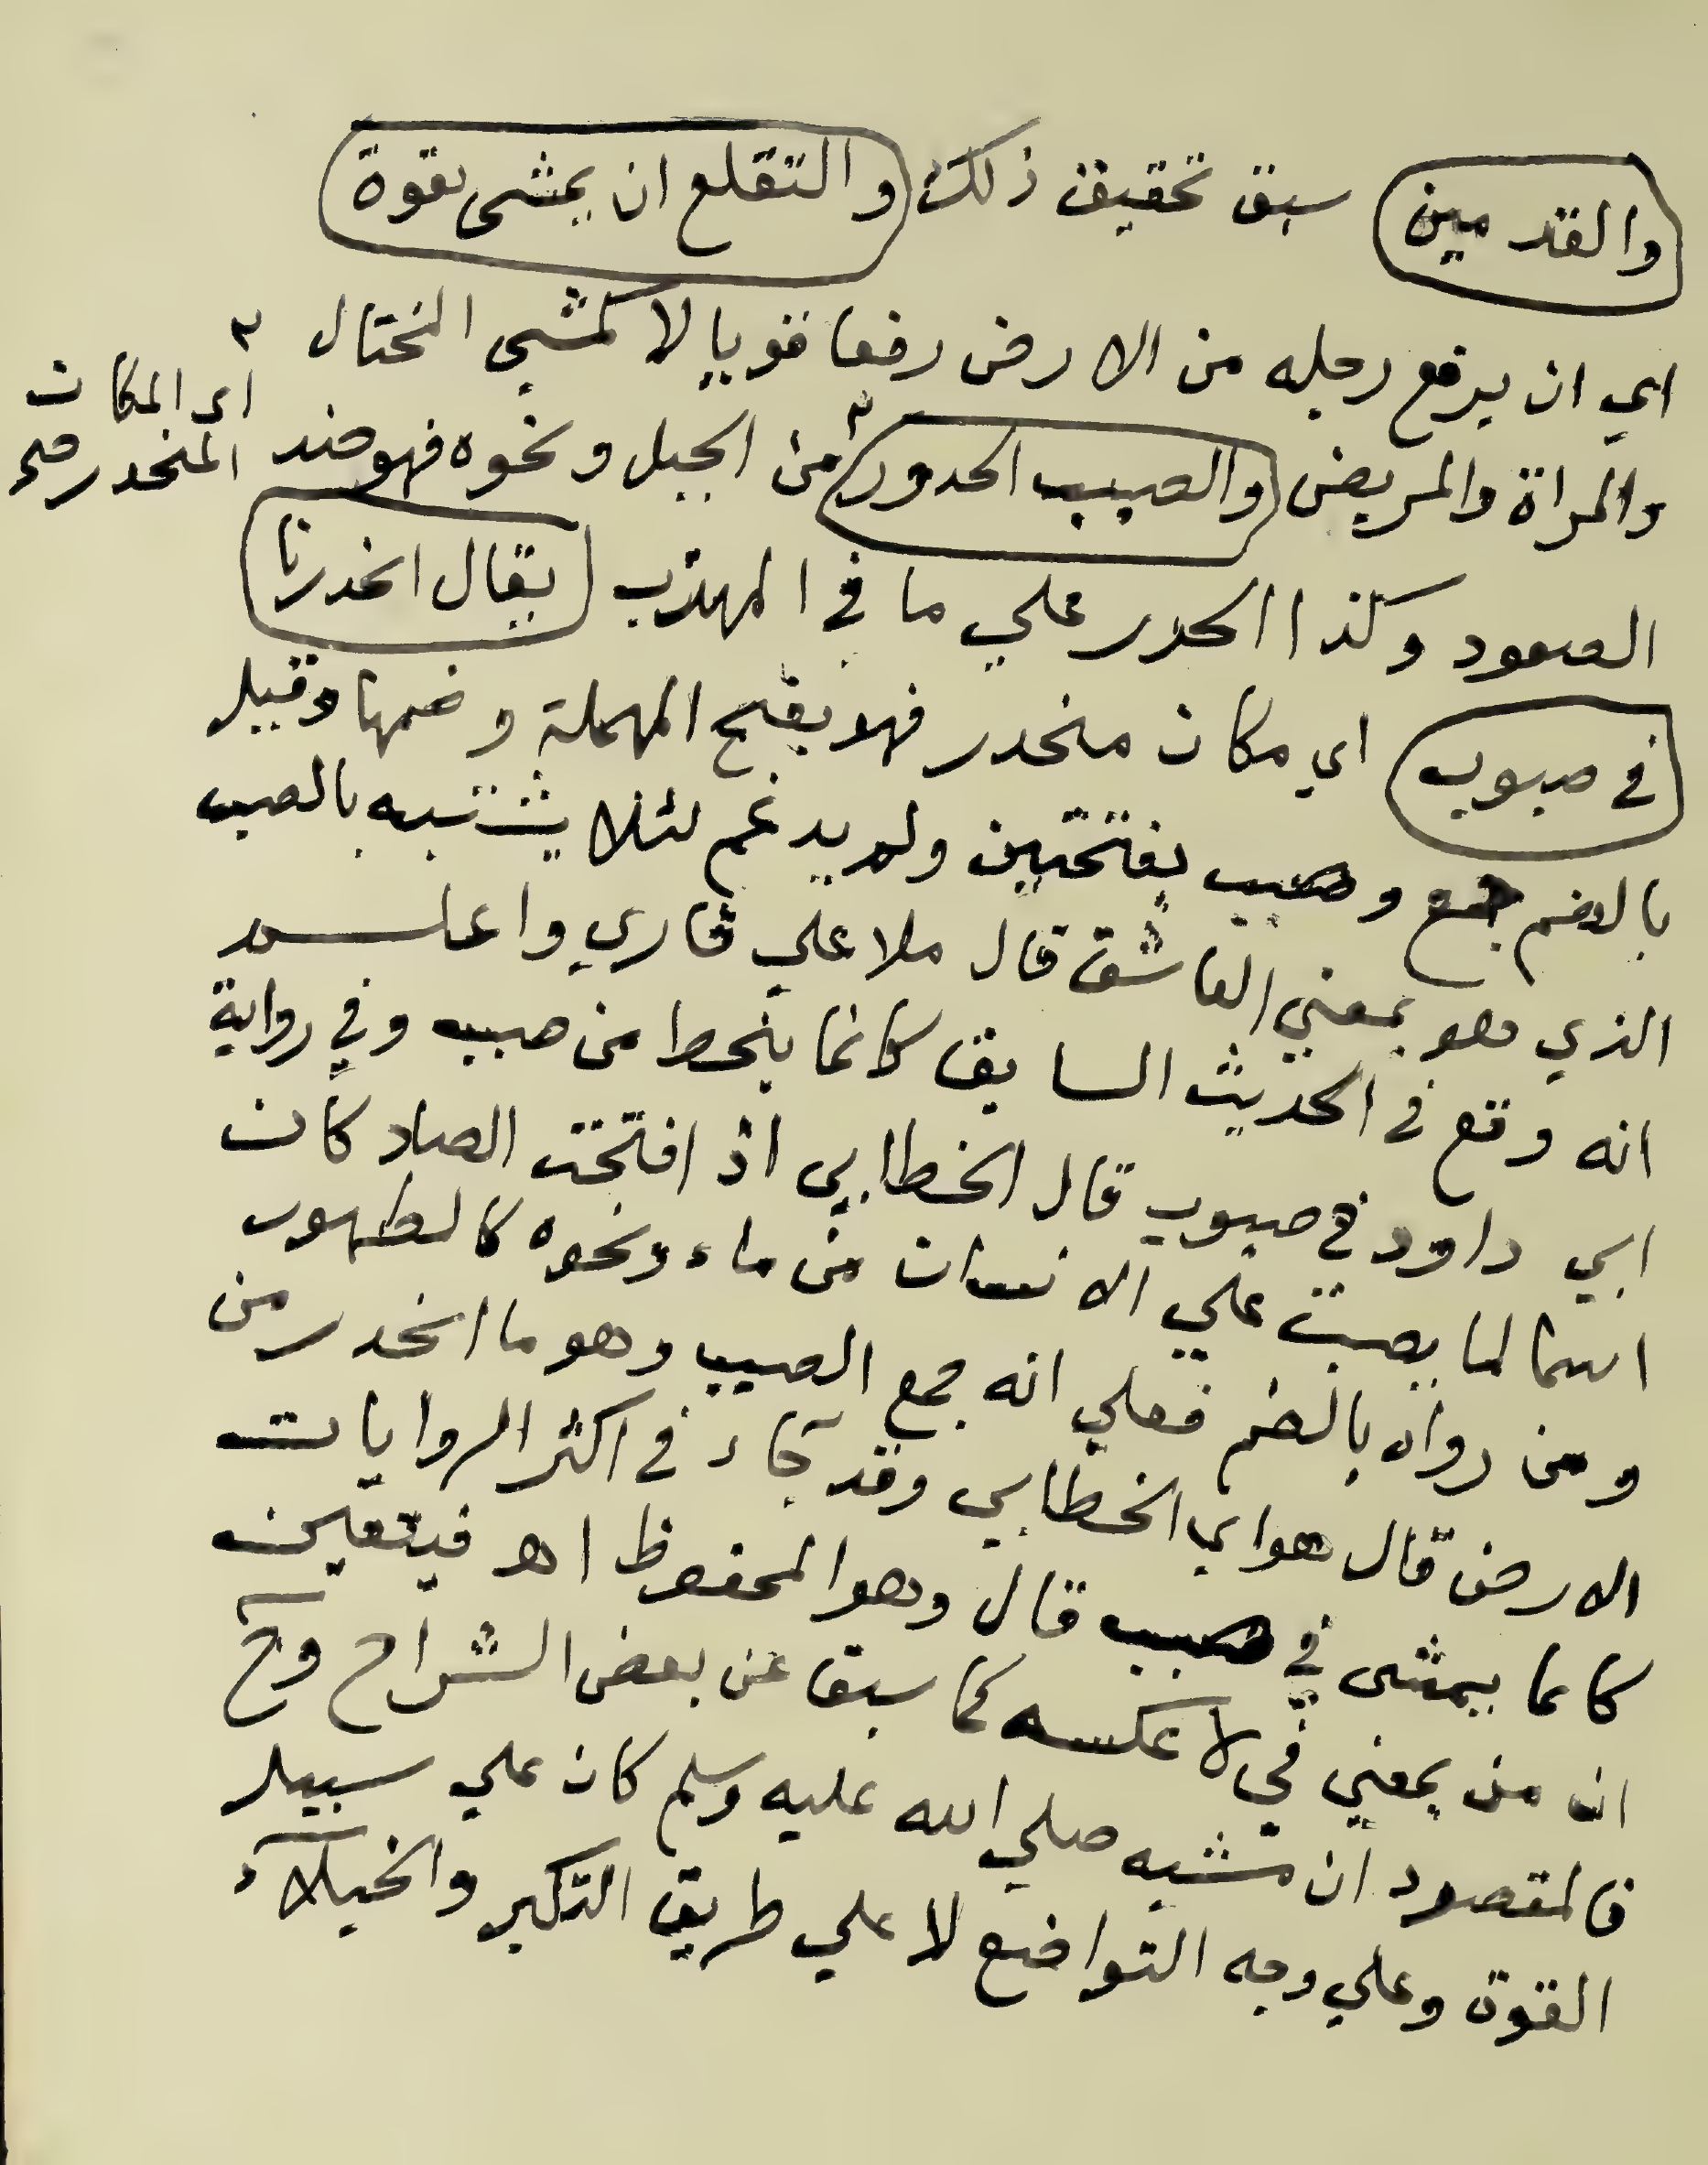 والقدمين سبق تحقيق ذلك والتقلع ان يمشى بقوة
اي ان يرفع رجله من الارض رفعا قويا لا كمشي المختال
والمراة والمريض والصبب الحدور ٢ من الجبل ونحوه فهو ضد
٢ اي المكان
المنحدر صح
الصعود وكذا الحدر علي ما في المهذب يقال انحدرنا
في صبوب اي مكان منحدر فهو بفتح المهملة وضمها وقيل
بالضم جمع وصبب بفتحتين ولم يدغم لئلا يشتبه بالصب
الذي هو بمعني العاشق قال ملا علي قاري واعلم
انه وقع في الحديث السابق كانما ينحط من صبب وفي رواية
ابي داود في صبوب قال الخطابي اذ افتحت الصاد كان
اسما لما يصب علي الانسان من ماء ونحوه كالطهور
ومن رواه بالضم فعلي انه جمع الصبب وهو ما انحدر من
الارض قال هو اي الخطابي وقد جاء في اكثر الروايات
كانما يمشى في صبب قال وهو المحفوظ اهـ فيتعين
ان من بمعني في لا عكسه كما سبق عن بعض الشراح وح
فالمقصود ان مشيه صلي الله عليه وسلم كان علي سبيل
القوة وعلي وجه التواضع لا علي طريق التكبر والخيلاء